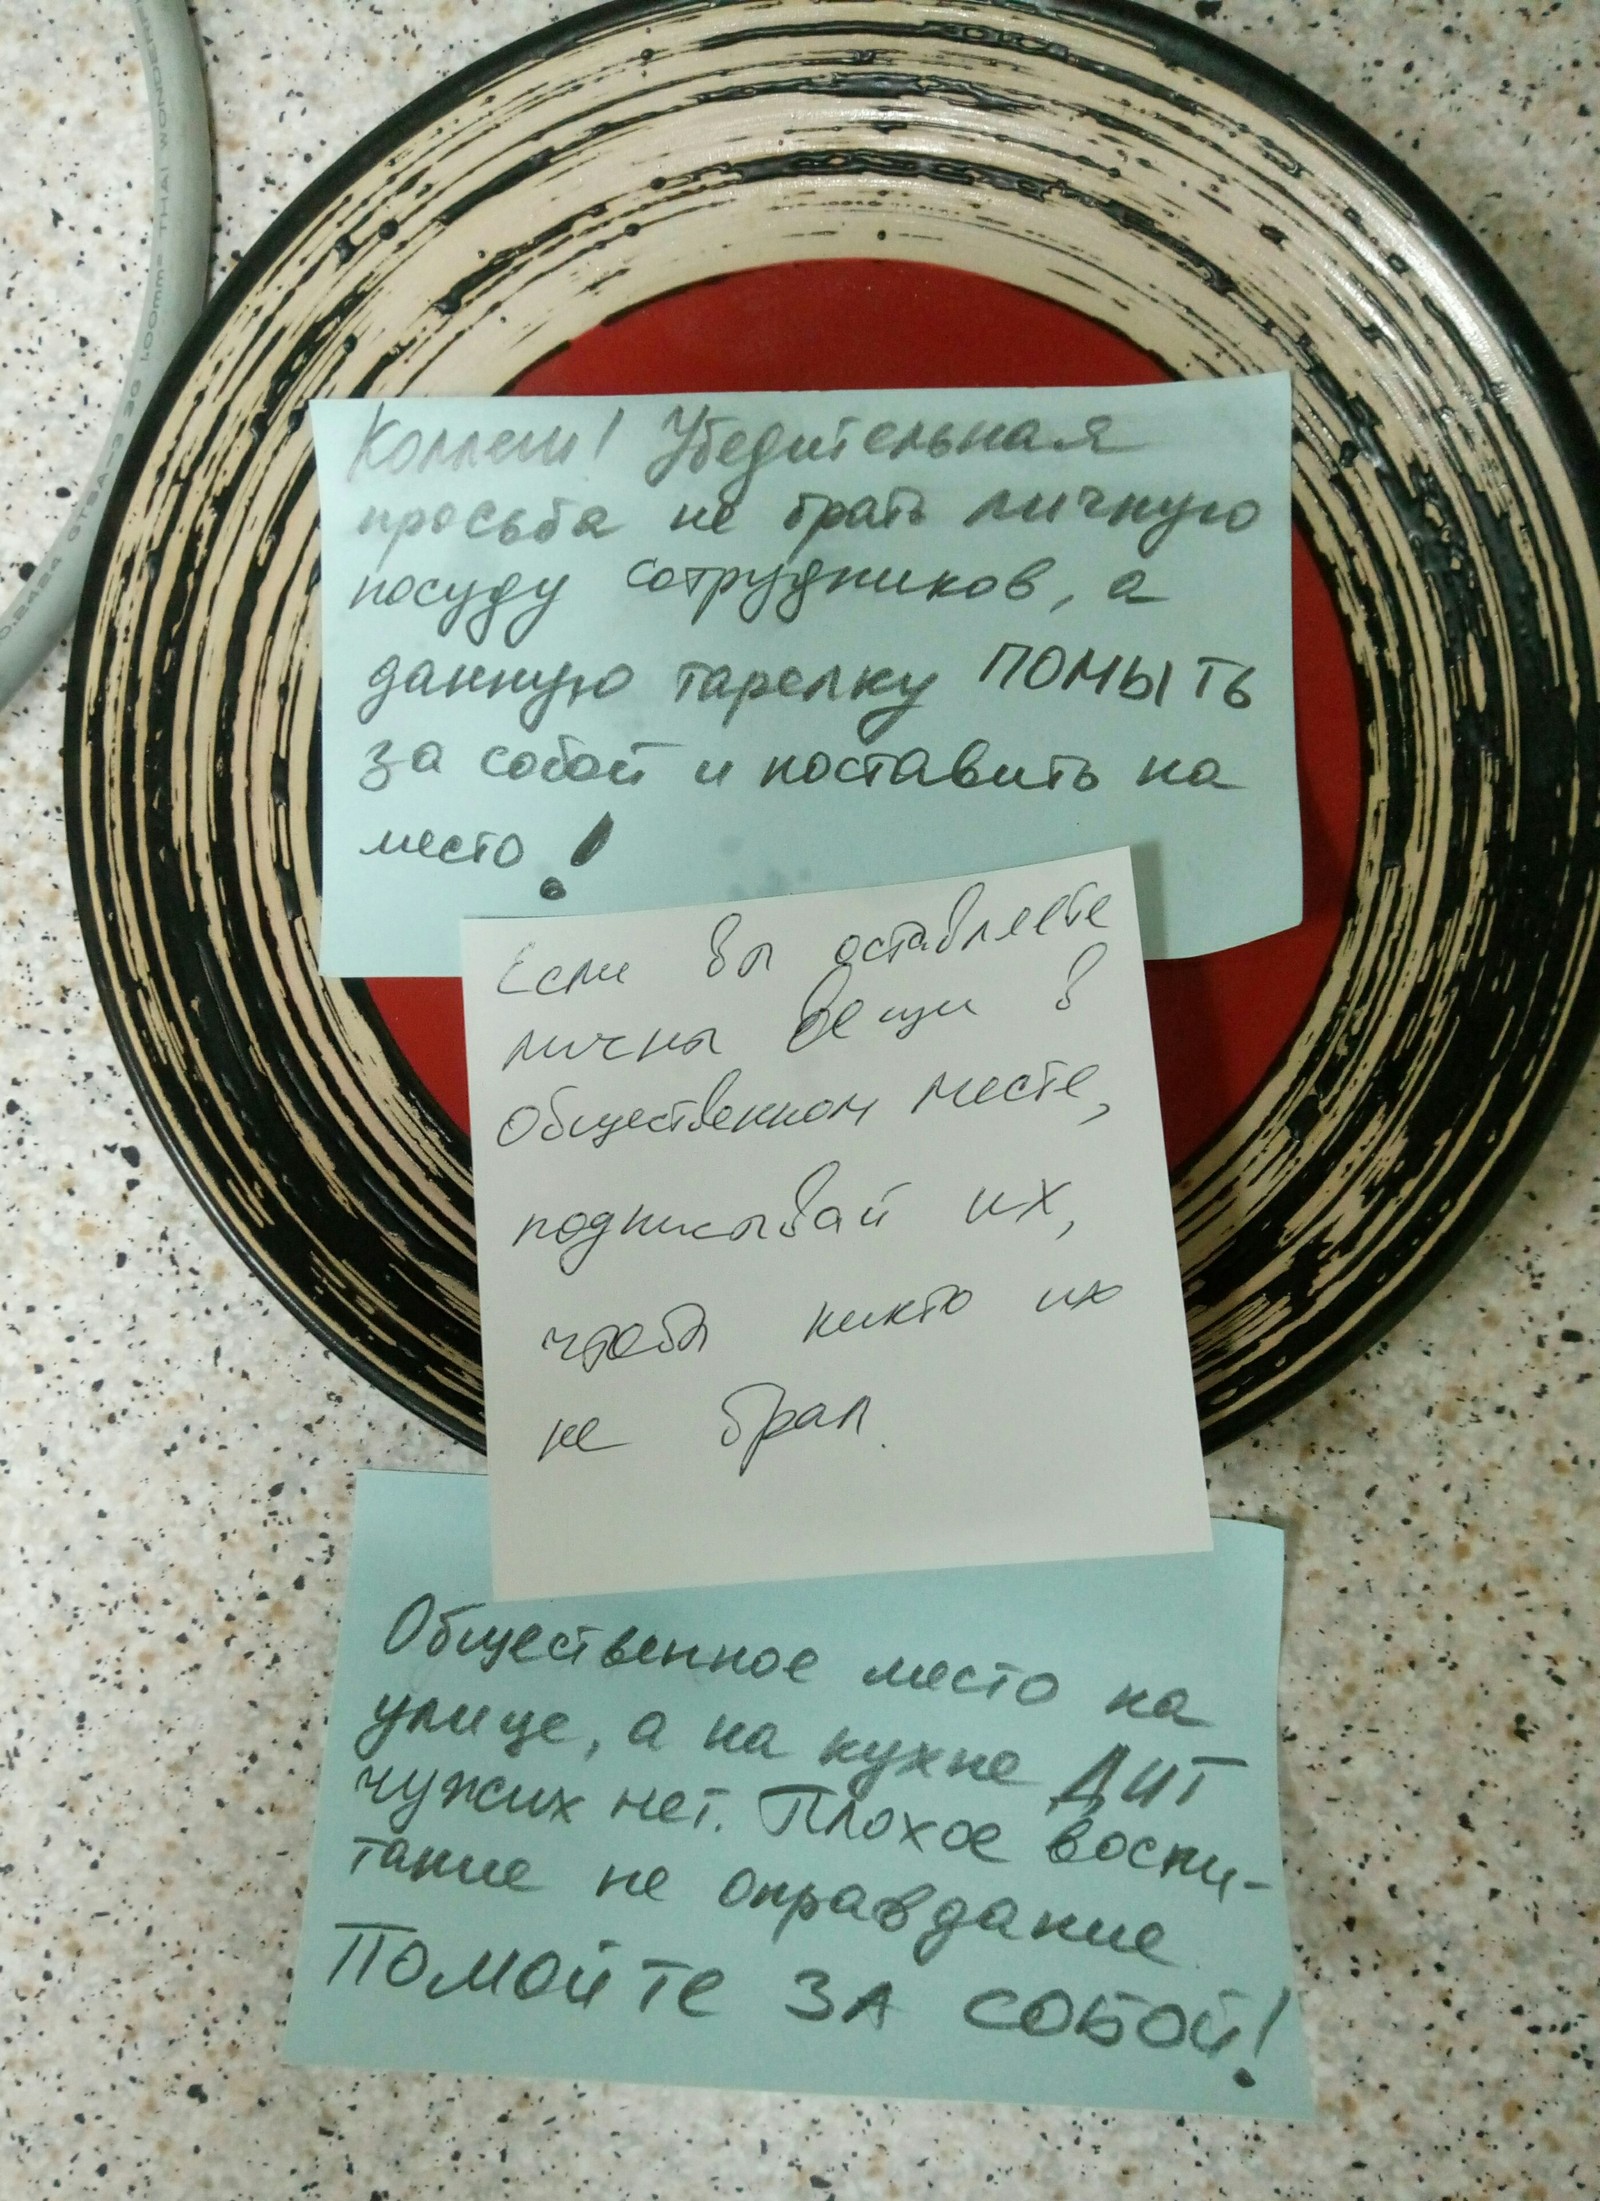 Коллеги! Убедительная
просьба не брать личную
посуду сотрудников, а
данную тарелку ПОМЫТЬ
за собой и поставить на
место!
Если вы оставляете
личны вещи в
общественном месте,
подписывай их,
чтобы никто их
не брал.
Общественное место на
улице, а на кухне ДИТ
чужих нет. Плохое воспи-
тание не оправдание
Помойте ЗА СОБОЙ!
THAI WONDER
3G 1.00mm²
60.2424 6TSA-3